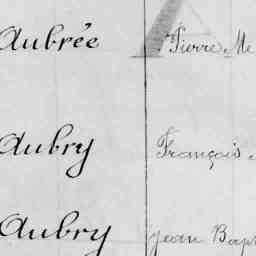 Aubrée Pierre Me
Aubry François
Aubry Jean Bap